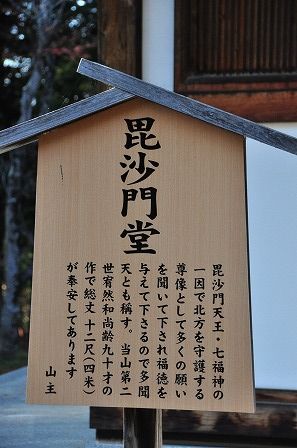 毘沙門堂
毘沙門天王・七福神の
一因で北方を守護する
尊像として多くの願い
を聞いて下され福徳を
与えて下さるので多聞
天とも稱す。当山第二
世宥然和尚齢九十才の
作で総丈 十二尺(四米)
が奉安してあります
山主